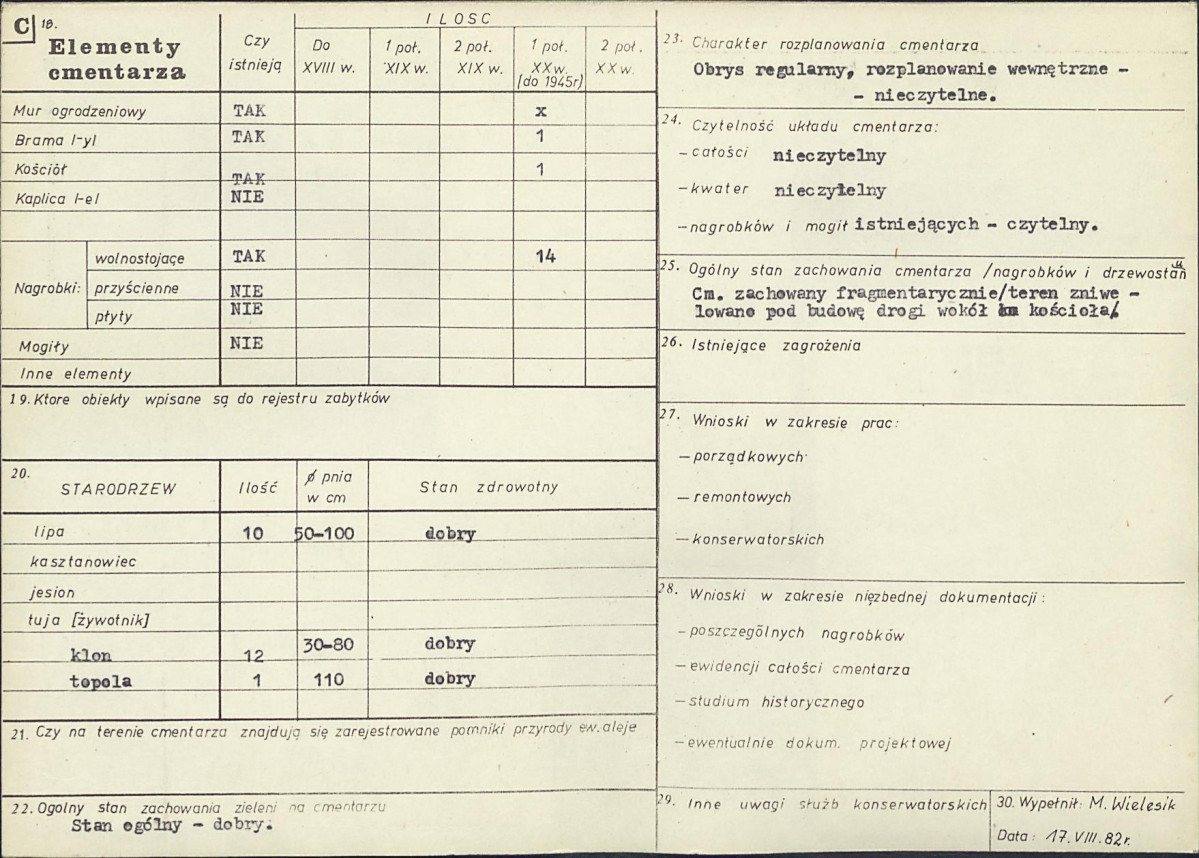 C 18.
Elementy
cmentarza
Czy
istnieją
ILOSC
Do
XVIII w.
1 poł.
XIX w.
2 poł.
XIX w.
1 poł.
XX w.
[do 1945r]
2 poł.
XX w.
Mur ogrodzeniowy TAK x
Brama /-y/ TAK 1
Kościół TAK 1
Kaplica /-e/ NIE
Nagrobki: wolnostojące TAK 14
przyścienne NIE
płyty NIE
Mogiły NIE
Inne elementy
19. Ktore obiekty wpisane są do rejestru zabytków
20.
STARODRZEW Ilość ø pnia
w cm Stan zdrowotny
lipa 10 50-100 dobry
kasztanowiec
jesion
tuja [żywotnik]
klon 12 30-80 dobry
topola 1 110 dobry
21. Czy na terenie cmentarza znajdują się zarejestrowane pomniki przyrody ew. aleje
22. Ogolny stan zachowania zieleni na cmentarzu
Stan ogólny - dobry.
23. Charakter rozplanowania cmentarza
Obrys regularny, rozplanowanie wewnętrzne -
- nieczytelne.
24. Czytelność układu cmentarza:
- całości nieczytelny
- kwater nieczytelny
- nagrobków i mogił istniejących - czytelny.
25. Ogólny stan zachowania cmentarza /nagrobków i drzewostanu
Cm. zachowany fragmentarycznie/teren zniwe -
lowano pod budowę drogi wokół kościoła/
26. Istniejące zagrożenia
27. Wnioski w zakresie prac:
- porządkowych
- remontowych
- konserwatorskich
28. Wnioski w zakresie nięzbednej dokumentacji:
- poszczególnych nagrobków
- ewidencji całości cmentarza
- studium historycznego
- ewentualnie dokum. projektowej
29. Inne uwagi służb konserwatorskich
30. Wypełnił: M. Wielesik
Data: 17.VIII.82r.